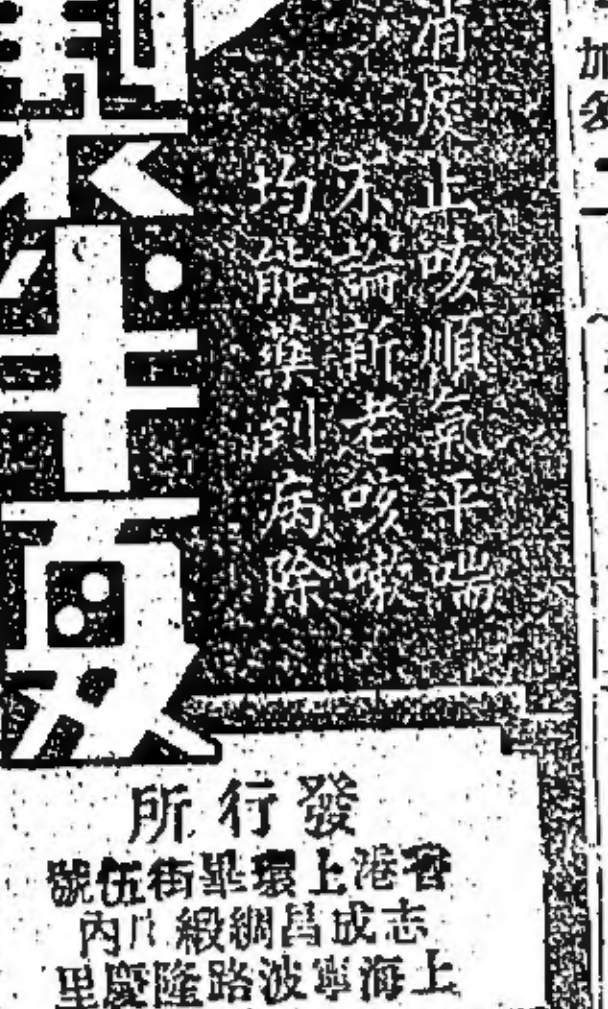 加
消痰止咳順氣平喘
不論新老咳嗽
均能藥到病除
製半夏
發行所
香港上環畢街伍號
志成昌綢緞內
上海寧波路隆慶里